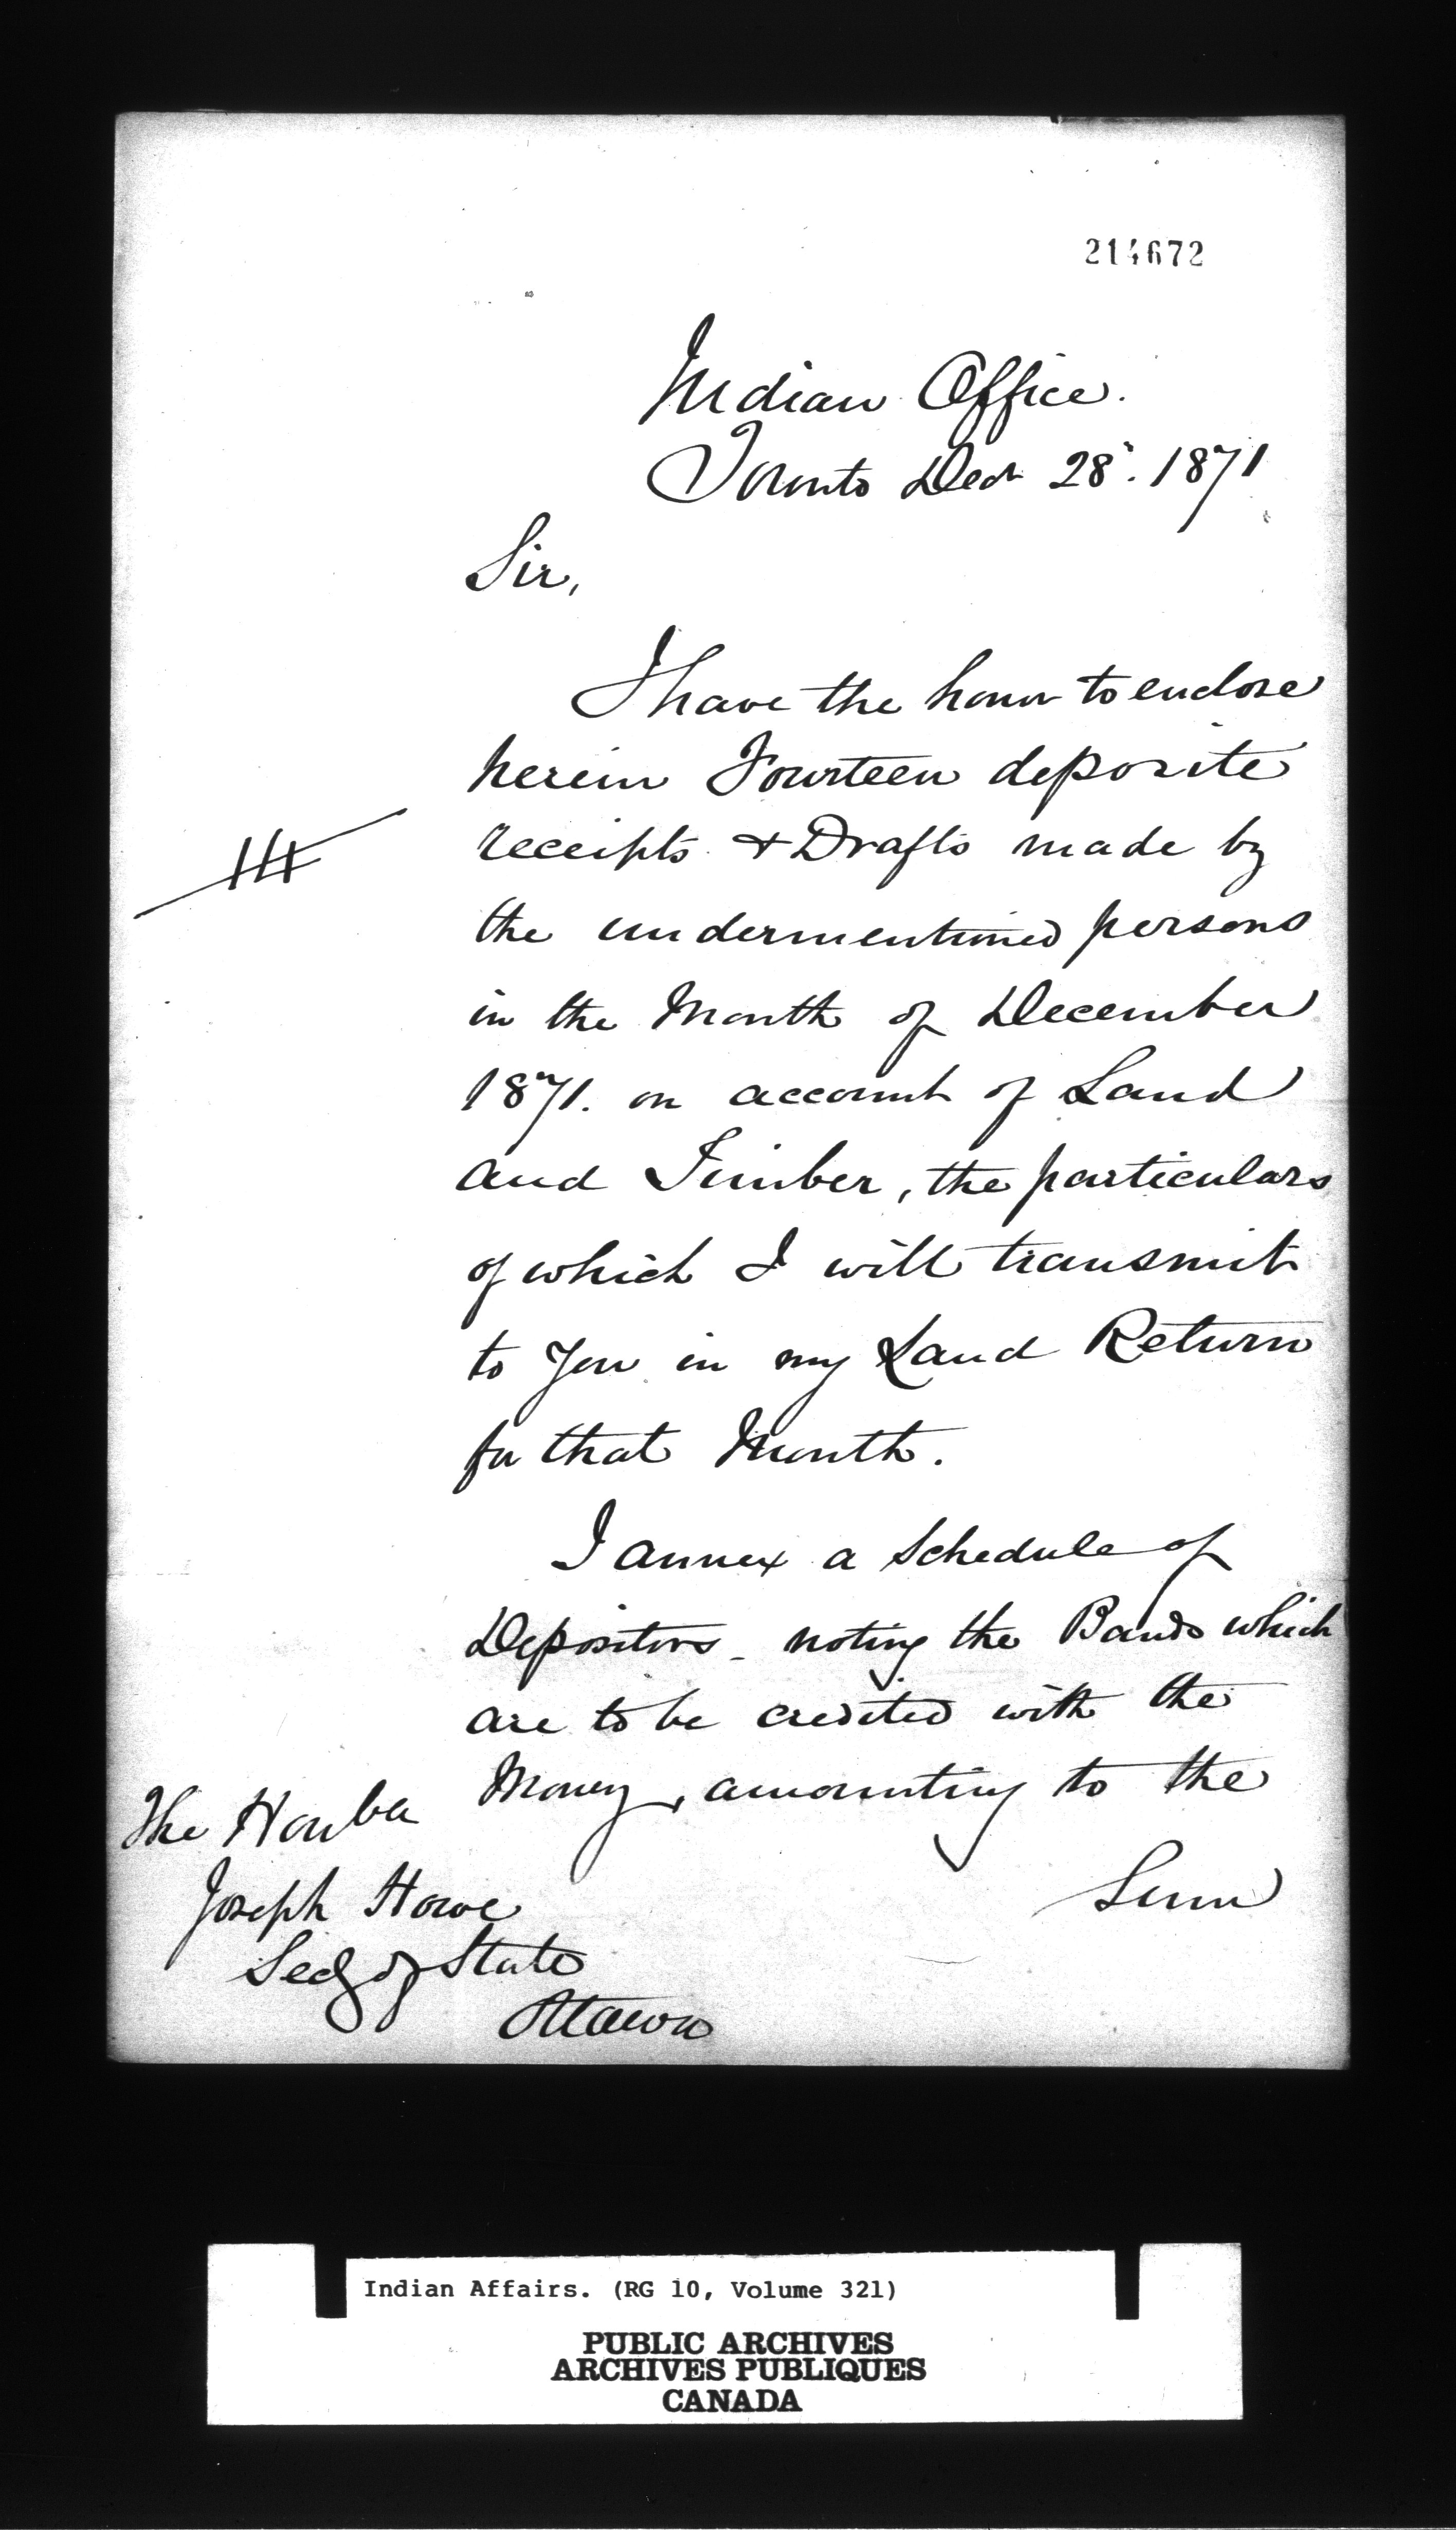 214672
Indian Office.
Toronto Decr 28". 1871
Sir,
I have the honor to enclose
herein Fourteen deposite
receipts & Drafts made by
the undermentioned persons
in the Month of December
1871. on account of Land
and Timber, the particulars
of which I will transmit
to you in my Land Return
for that Month.
I annex a Schedule of
Depositors - noting the Bands which
are to be credited with the
Money, amounting to the
Sum
The Honble
Joseph Howe
Secy of State
Ottawa
Indian Affairs. (RG 10, Volume 321)
PUBLIC ARCHIVES
ARCHIVES PUBLIQUES
CANADA